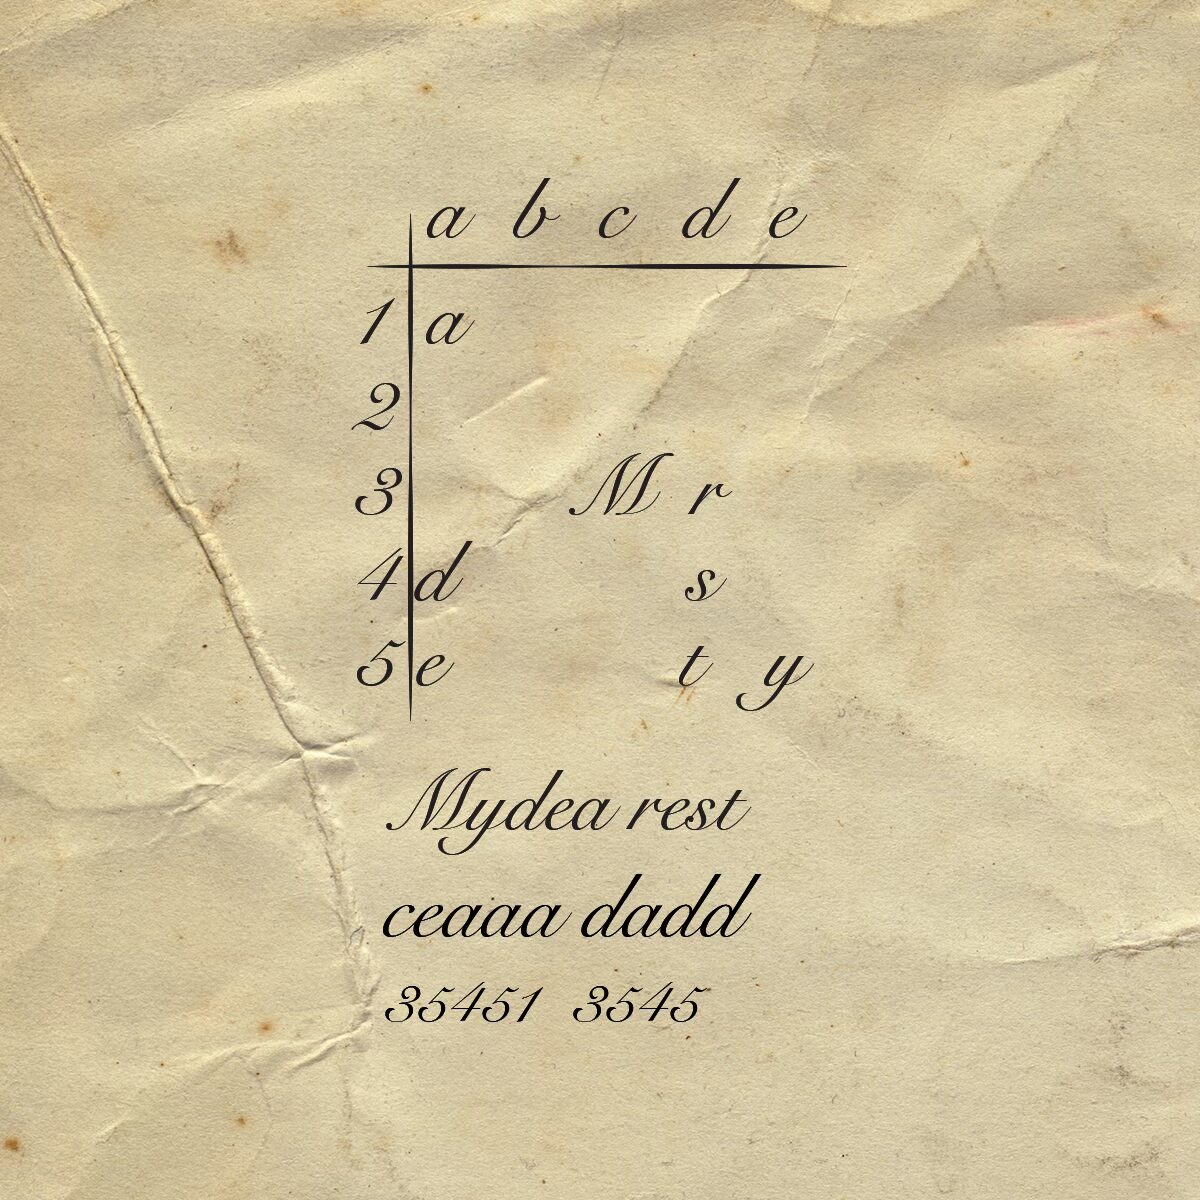 a b c d e
1 a
2
3 M r
4 d s
5 e t y
Mydea rest
ceaaa dadd
35451 3545